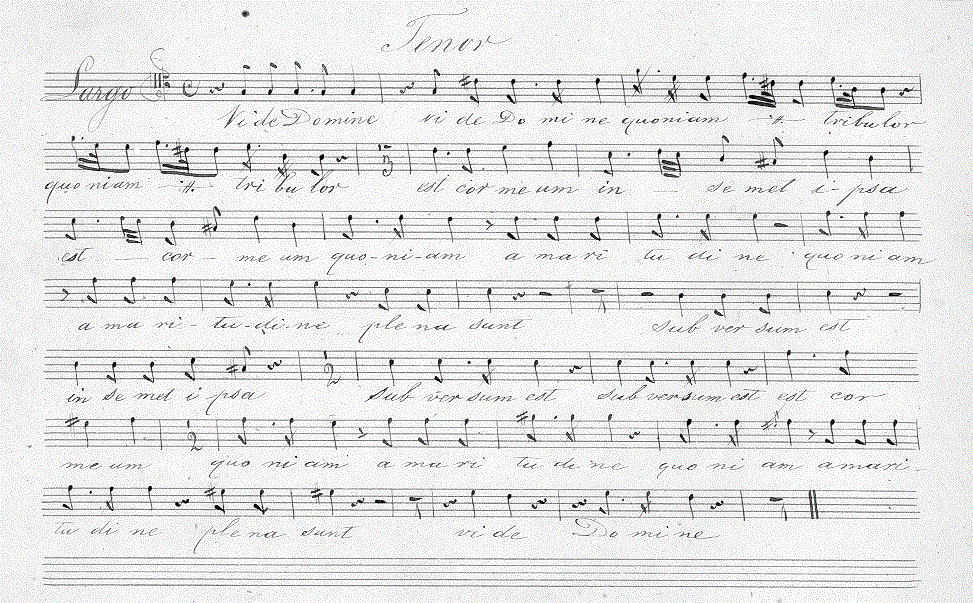 Tenor
Largo
Vi de Domine vi de Do mi ne quoniam -:#- tribulor
quo niam -:#:- tribulor est cor me um in - se mel i-psa
est - cor - me um quo-ni-am a ma ri tu di ne quo ni am
a ma ri-tu-di-ne plena sunt sub ver sum est
in se mel i-psa sub ver sum est subversum est est cor
me um quo ni am a ma ri tu di ne quo ni am amari
tu di ne plena sunt vi de Do mi ne